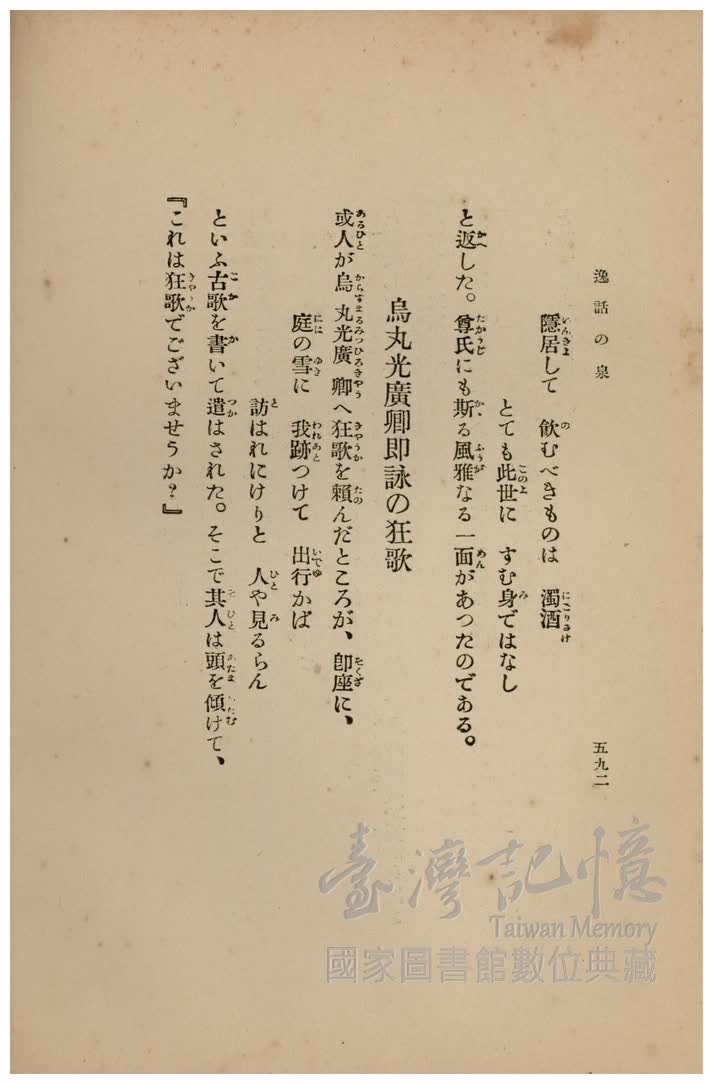 逸話の泉
五九二
隱居して 飮むべきものは 濁酒
とても此世に すむ身ではなし
と返した。尊氏にも斯る風雅なる一面があつたのである。
烏丸光廣卿即詠の狂歌
或人が烏丸光廣卿へ狂歌を賴んだところが、卽座に、
庭の雪に 我跡つけて 出行かば
訪はれにけりと 人や見るらん
といふ古歌を書いて遣はされた。そこで其人は頭を傾けて、
『これは狂歌でございませうか?』
臺灣記憶
Taiwan Memory
國家圖書館數位典藏